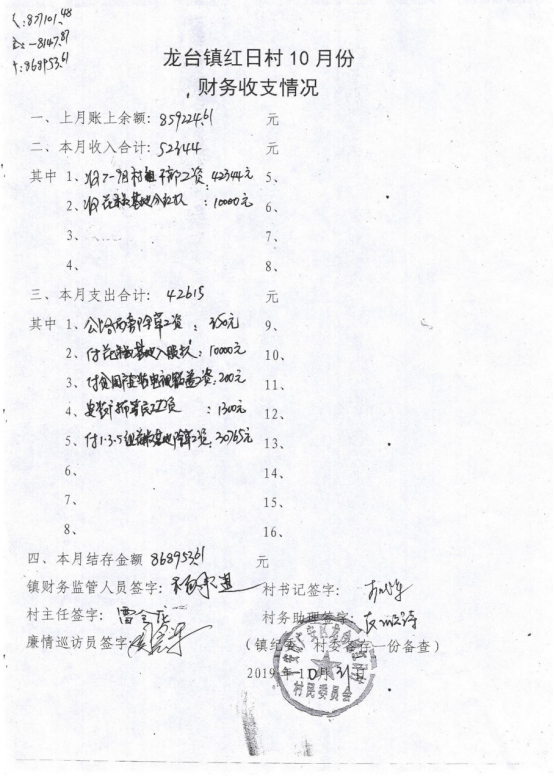 :877101.48
: -8147.87
: 868953.61
龙台镇红日村10月份
财务收支情况
一、上月账上余额: 859224.61 元
二、本月收入合计: 52344 元
其中 1、收7-9月村组干部工资: 42344元 5、
2、收花椒基地分红款: 10000元 6、
3、 7、
4、 8、
三、本月支出合计: 42615 元
其中 1、公路两旁除草工资: 350元 9、
2、付花椒基地入股款: 10000元 10、
3、 200元 11、
4、 工资: 1300元 12、
5、付1.3.5组花椒基地除草工资: 30765元 13、
6、 14、
7、 15、
8、 16、
四、本月结存金额 868953.61 元
镇财务监管人员签字: 村书记签字:
村主任签字: 村务助理签字:
廉情巡访员签字: (镇纪委、村委各存一份备查)
2019年10月31
村民委员会